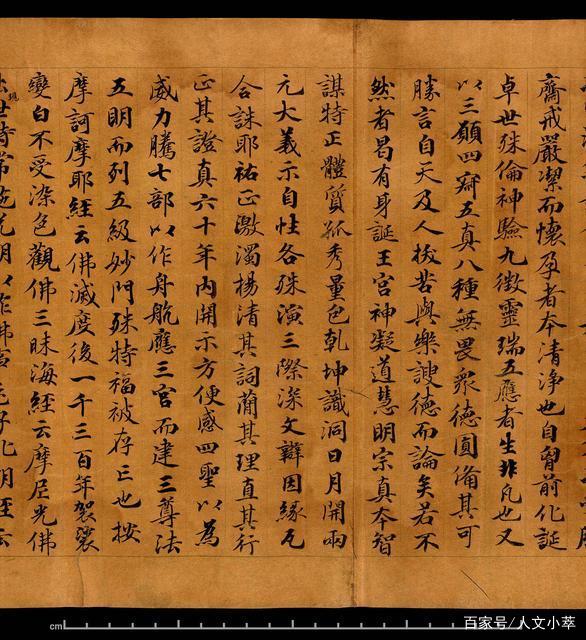 齋戒嚴潔而懷孕者本清淨也自胷前化誕
卓世殊倫神驗九徵靈瑞五應者生非凡也又
以三願四寂五真八種無畏衆德圓備其可
勝言自天及人拔苦與樂諛德而論矣若不
然者曷有身誕王宮神凝道慧明宗真本智
謀特正體質孤秀量包乾坤識洞日月開兩
元大義示自性各殊演三際深文辯因緣瓦
合誅耶祐正激濁揚清其詞蕳其理直其行
正其證真六十年內開示方便感四聖以為
威力騰七部以作舟航應三宮而建三尊法
五明而列五級妙門殊特福被存亡也按
摩訶摩耶經云佛滅度後一千三百年袈裟
變白不受染色觀佛三昧海經云摩尼光佛
出世時常施光明以作佛事
cm
百家号/人文小萃